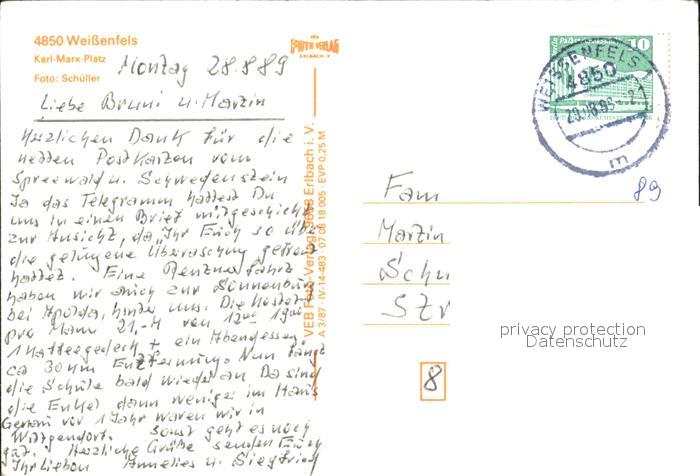 4850 Weißenfels
Karl-Marx-Platz
Foto: Schüller
Montag 28.8.89
Liebe Bruni u. Martin
Herzlichen Dank für die
netten Postkarten vom
Spreewald u. Schwedenstein
Ja das Telegramm hattest Du
uns in einen Brief mitgeschickt
zur Ansicht, da Ihr Euch so über
die gelungene Überraschung gefreut
hattet. Eine Rentnerfahrt
haben wir auch zur Sonnenburg
bei Apolda, hinter uns. Die kostet
pro Mann 21,-M von 12⁰⁰ 19⁰⁰
1 Kaffeegedeck + ein Abendessen.
ca 30 km Entfernung. Nun fängt
die Schule bald wieder an Da sind
die Enkel dann weniger im Haus
Genau vor 1 Jahr waren wir in
Wittgendorf. Sonst geht es noch
gut. Herzliche Grüße senden Euch
Ihr Lieben Annelies u. Siegfried
VEB Foto-Verlag 9653 Erlbach i. V.
A 3/87 · IV-14-483 07 08 18 005 · EVP 0,25 M
FOTO VERLAG
ERLBACH
10
WEISSENFELS 1
4850
m
89
Fam
Martin
Schu
Str
privacy protection
Datenschutz
8